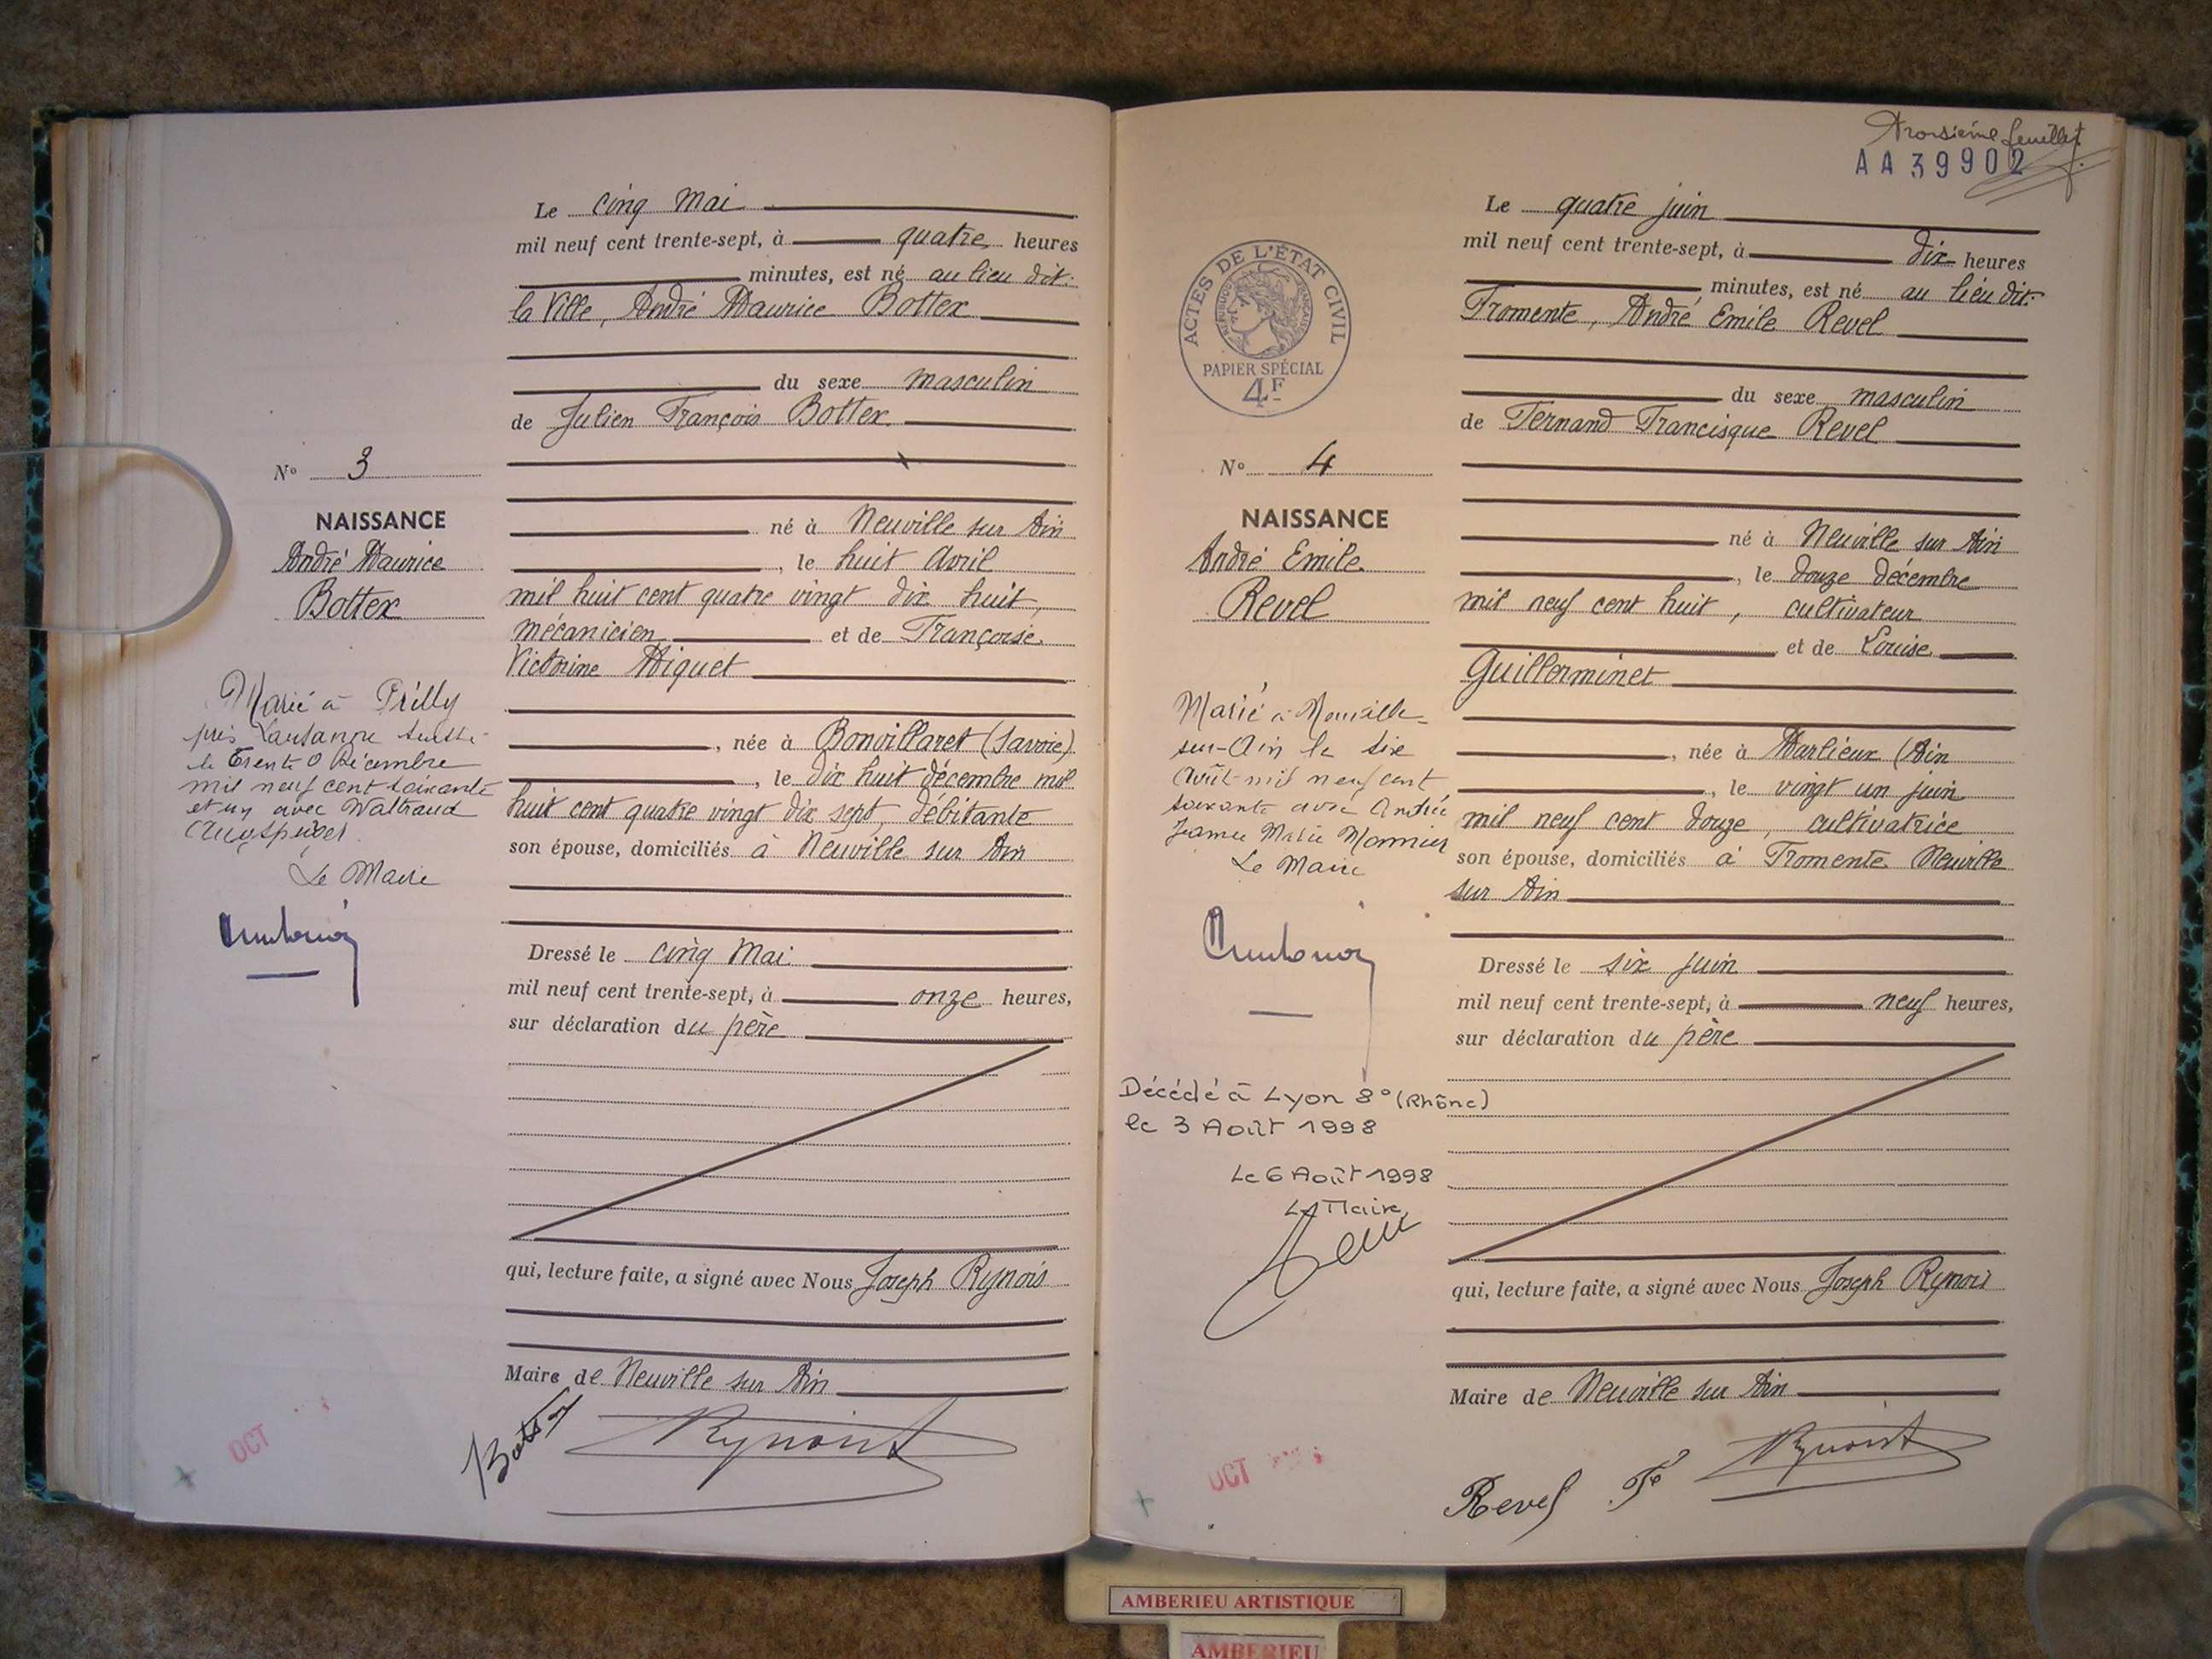 Le cinq Mai
mil neuf cent trente-sept, à quatre heures
minutes, est né au lieu dit:
la Ville, André Maurice Bottex
du sexe masculin
de Julien François Bottex
No 3
NAISSANCE
André Maurice
Bottex
né à Neuville sur Ain
, le huit Avril
mil huit cent quatre vingt dix huit,
mécanicien et de Françoise
Victorine Miquet
, née à Bonvillaret (Savoie)
, le dix huit décembre mil
huit cent quatre vingt dix sept, débitante
son épouse, domiciliés à Neuville sur Ain
Marié à Prilly
près Lausanne Suisse
le Trente Décembre
mil neuf cent soixante
et un avec Waltraud
Le Maire
Dressé le cinq Mai
mil neuf cent trente-sept, à onze heures,
sur déclaration du père
qui, lecture faite, a signé avec Nous Joseph Rynois
Maire de Neuville sur Ain
OCT
Troisième feuillet
AA39902
Le quatre juin
mil neuf cent trente-sept, à dix heures
minutes, est né au lieu dit:
Fromente, André Emile Revel
ACTES DE L'ÉTAT CIVIL
RÉPUBLIQUE FRANÇAISE
PAPIER SPÉCIAL
4F
du sexe masculin
de Fernand Francisque Revel
No 4
NAISSANCE
André Emile
Revel
né à Neuville sur Ain
, le douze décembre
mil neuf cent huit, cultivateur
et de Louise
Guillerminet
, née à Marlieux (Ain
, le vingt un juin
mil neuf cent douze, cultivatrice
son épouse, domiciliés à Fromente Neuville
sur Ain
Marié à Neuville-
sur-Ain le six
Août mil neuf cent
soixante avec Andrée
Jeanne Marie Monnier
Le Maire
Dressé le six juin
mil neuf cent trente-sept, à neuf heures,
sur déclaration du père
Décédé à Lyon 8° (Rhône)
le 3 Août 1998
Le 6 Août 1998
Le Maire,
qui, lecture faite, a signé avec Nous Joseph Rynois
Maire de Neuville sur Ain
Revel
OCT
AMBERIEU ARTISTIQUE
AMBERIEU